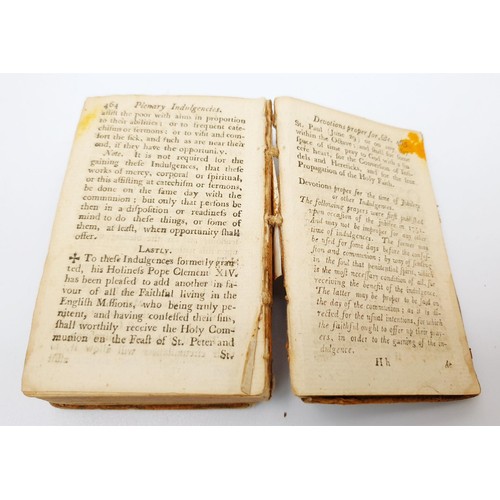 464 Plenary Indulgencies.
assist the poor with alms in proportion
to their abilities; or to frequent cate-
chism or sermons; or to visit and com-
fort the sick, and such as are near their
end, if they have the opportunity.
Note, It is not required for the
gaining these Indulgences, that these
works of mercy, corporal or spiritual,
or this assisting at catechism or sermons,
be done on the same day with the
communion; but only that persons be
then in a disposition or readiness of
mind to do these things, or some of
them, at least, when opportunity shall
offer.
LASTLY.
✠ To these Indulgences formerly gran-
ted, his Holiness Pope Clement XIV.
has been pleased to add another in fa-
vour of all the Faithful living in the
English Missions, who being truly pe-
nitent, and having confessed their sins,
shall worthily receive the Holy Com-
munion on the Feast of St. Peter and
St.
Devotions proper for
St. Paul (June 29) or on any day
within the Octave; and shall for some
space of time pray to God with a sin-
cere heart, for the Conversion of Infi-
dels and Hereticks, and for the free
Propagation of the Holy Faith.
Devotions proper for the time of Jubilee,
or other Indulgences.
The following prayers were first published
upon occasion of the Jubilee in
And may not be improper for any other
time of indulgences. The former may
be used for some days before the confes-
sion and communion; by way of
in the soul that penitential spirit, which
is the most necessary condition of all, for
receiving the benefit of the indulgence.
The latter may be proper to be used on
the day of the communion: as it is di-
rected for the usual intentions, for which
the faithful ought to offer up their pray-
ers, in order to the gaining of the in-
dulgence.
H h